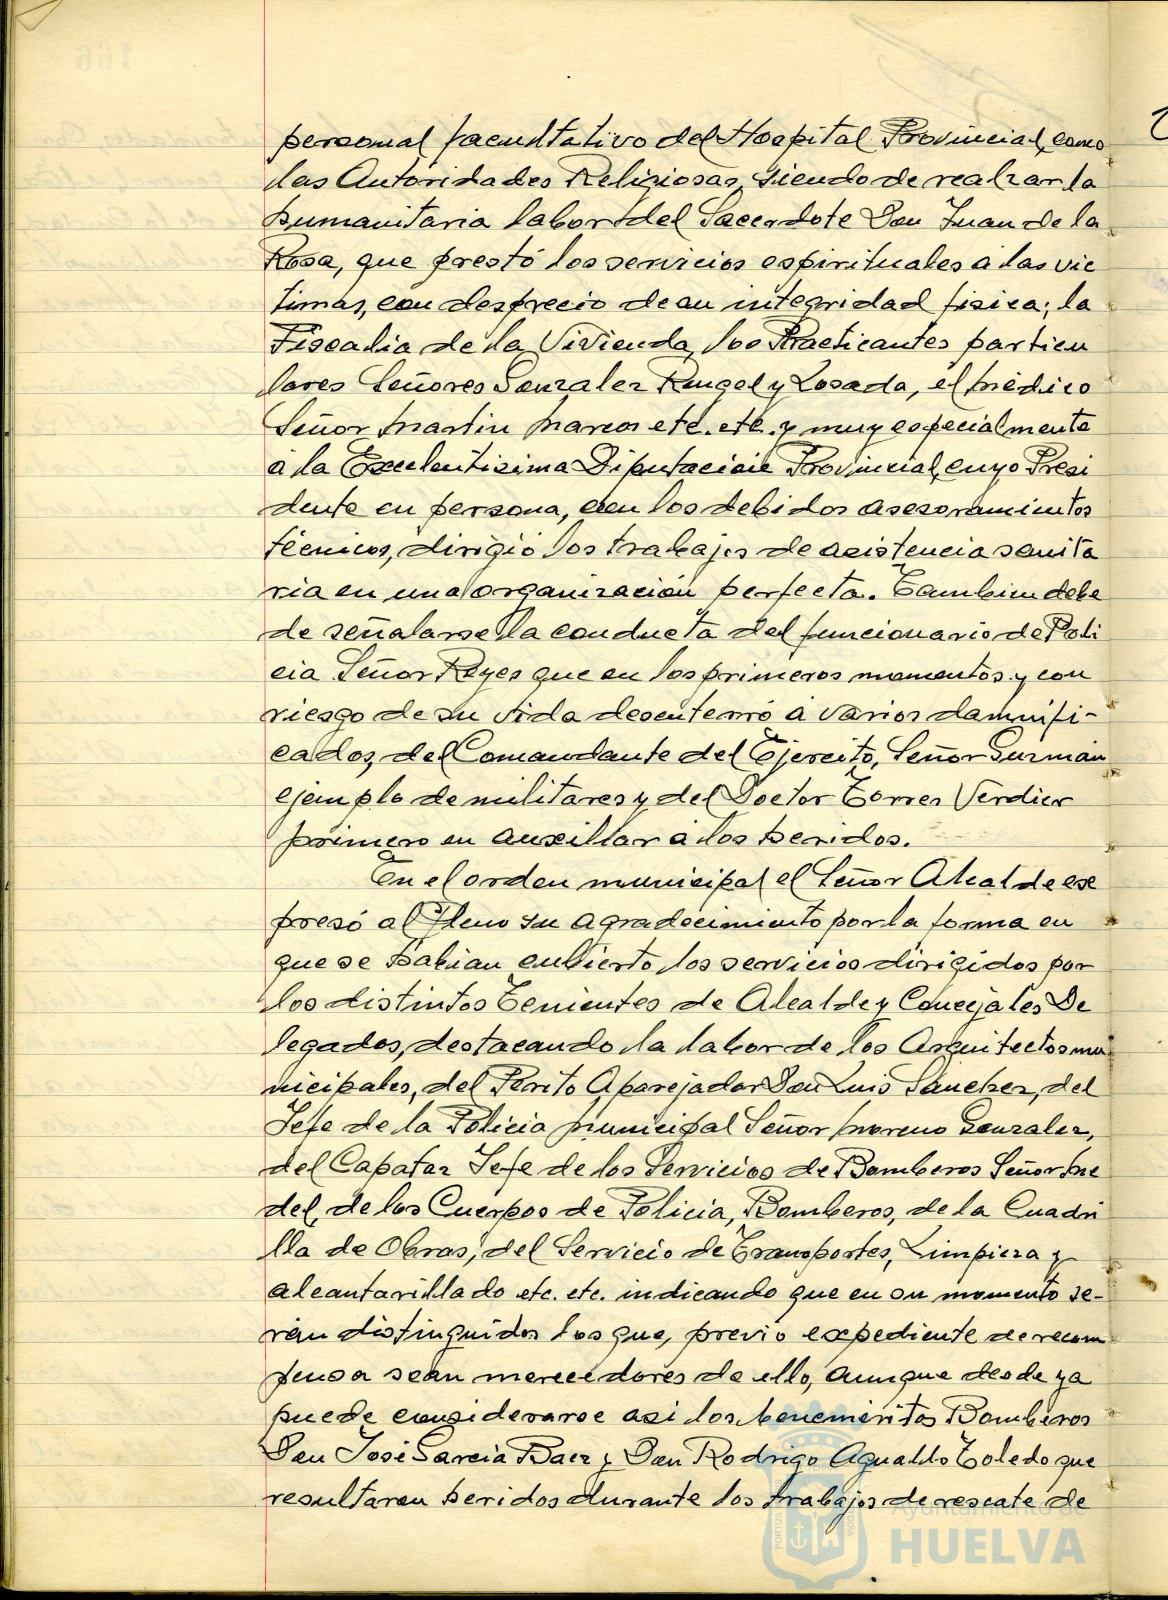 personal facultativo del Hospital Provincial, como
las Autoridades Religiosas, siendo de realzar la
humanitaria labor del Sacerdote Don Juan de la
Rosa, que prestó los servicios espirituales a las vic
timas, con desprecio de su integridad fisica; la
Fiscalia de la Vivienda, los Practicantes particu
lares Señores Gonzalez Rengel y Losada, el médico
Señor Martin
etc. etc. y muy especialmente
a la Excelentisima Diputación Provincial, cuyo Presi
dente en persona, con los debidos asesoramientos
técnicos, dirigió los trabajos de asistencia sanita
ria en una organización perfecta. Tambien debe
de señalarse la conducta del funcionario de Poli
cia Señor Reyes que en los primeros momentos y con
riesgo de su vida desenterró a varios damnifi-
cados, del Comandante del Ejercito, Señor Guzmán
ejemplo de militares y del Doctor Torres Verdier
primero en auxiliar a los heridos.
En el orden municipal el Señor Alcalde ex
presó al Pleno su agradecimiento por la forma en
que se habian cubierto los servicios dirigidos por
los distintos Tenientes de Alcalde y Concejales De
legados, destacando la labor de los Arquitectos mu
nicipales, del Perito Aparejador Don Luis Sánchez, del
Jefe de la Policia Municipal Señor Moreno Gonzalez,
del Capataz Jefe de los Servicios de Bomberos Señor Me
del, de los Cuerpos de Policia, Bomberos, de la Cuadri
lla de Obras, del Servicio de Transportes, Limpieza y
alcantarillado etc. etc. indicando que en su momento se-
rán distinguidos los que, previo expediente de recom
pensa sean merecedores de ello, aunque desde ya
puede considerarse asi los benemeritos Bomberos
Don José Garcia Baez y Don Rodrigo Agualdo Toledo que
resultaron heridos durante los trabajos de rescate de
Ayuntamiento de
HUELVA